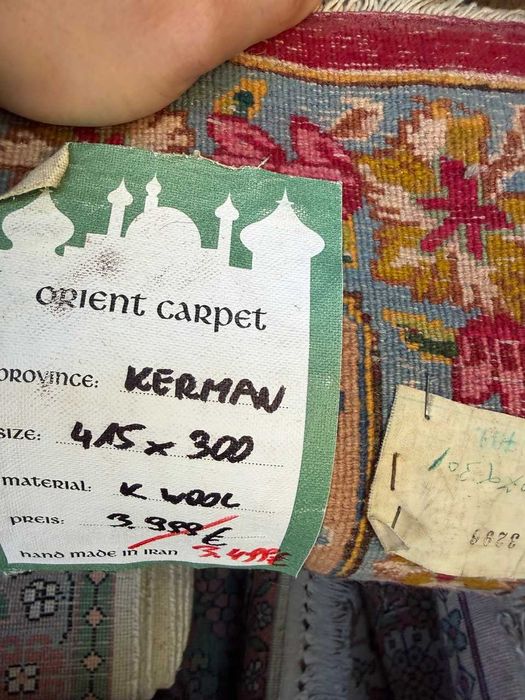 ORIENT CARPET
PROVINCE: KERMAN
SIZE: 415 x 300
MATERIAL: K WOOL
PREIS: 3.999€
3.499€
HAND MADE IN IRAN
3296